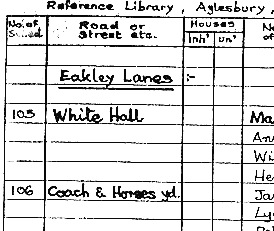 Reference Library, Aylesbury,
No. of Sched. Road or Street etc. Houses
Inh' Un'
Eakley Lanes :-
105 White Hall Ma
An
Wi
He
106 Coach & Horses yd. Ja
Ly